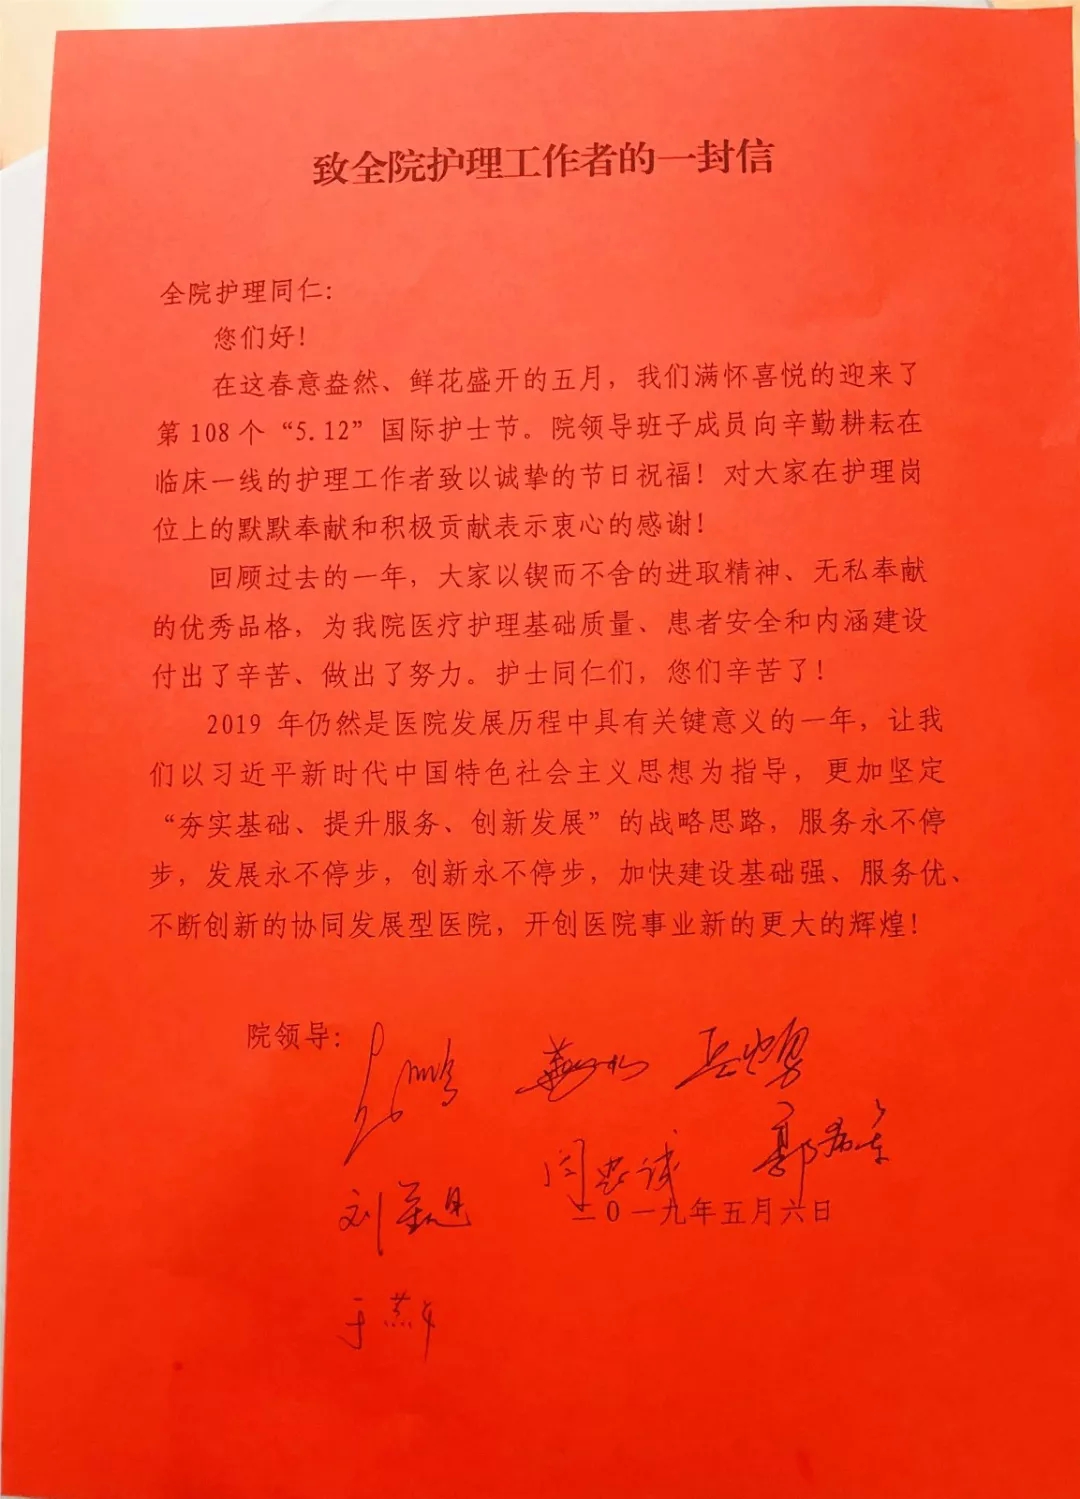 致全院护理工作者的一封信
全院护理同仁：
您们好！
在这春意盎然、鲜花盛开的五月，我们满怀喜悦的迎来了
第 108 个 “5.12” 国际护士节。院领导班子成员向辛勤耕耘在
临床一线的护理工作者致以诚挚的节日祝福！对大家在护理岗
位上的默默奉献和积极贡献表示衷心的感谢！
回顾过去的一年，大家以锲而不舍的进取精神、无私奉献
的优秀品格，为我院医疗护理基础质量、患者安全和内涵建设
付出了辛苦、做出了努力。护士同仁们，您们辛苦了！
2019 年仍然是医院发展历程中具有关键意义的一年，让我
们以习近平新时代中国特色社会主义思想为指导，更加坚定
“夯实基础、提升服务、创新发展”的战略思路，服务永不停
步，发展永不停步，创新永不停步，加快建设基础强、服务优、
不断创新的协同发展型医院，开创医院事业新的更大的辉煌！
院领导：
闫忠诚
刘
二0一九年五月六日